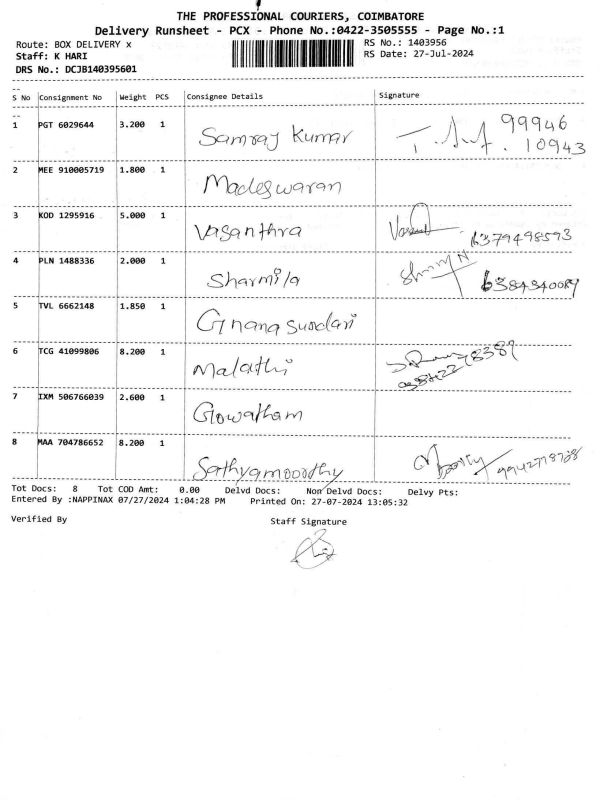 THE PROFESSIONAL COURIERS, COIMBATORE
Delivery Runsheet - PCX - Phone No.:0422-3505555 - Page No.:1
Route: BOX DELIVERY x RS No.: 1403956
Staff: K HARI RS Date: 27-Jul-2024
DRS No.: DCJB140395601
S No Consignment No Weight PCS Consignee Details Signature
1 PGT 6029644 3.200 1 Samraj Kumar 99946
10943
2 MEE 910005719 1.800 1 Madeswaran
3 KOD 1295916 5.000 1 Vasanthra 6379498593
4 PLN 1488336 2.000 1 Sharmila
5 TVL 6662148 1.850 1 Gnana sundari
6 TCG 41099806 8.200 1 Malathi
7 IXM 506766039 2.600 1 Gowatham
8 MAA 704786652 8.200 1 Sathyamoorthy
Tot Docs: 8 Tot COD Amt: 0.00 Delvd Docs: Non Delvd Docs: Delvy Pts:
Entered By :NAPPINAX 07/27/2024 1:04:28 PM Printed On: 27-07-2024 13:05:32
Verified By Staff Signature